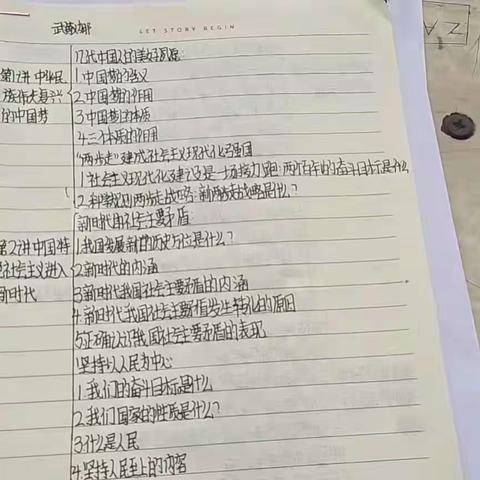 LET STORY BEGIN
几代中国人的美好夙愿:
第1讲 中华民 1.中国梦的含义
族伟大复兴 2.中国梦的作用
的中国梦 3.中国梦的本质
4.三个本质的作用
"两步走"建成社会主义现代化强国
1.社会主义现代化建设是一场接力跑,两个百年的奋斗目标是什么
2.科学规划两步走战略:新两步走战略是什么?
新时代社会主要矛盾
第2讲 中国特 1.我国发展新的历史方位是什么?
社会主义进入 2.新时代的内涵
新时代 3.新时代我国社会主要矛盾的内涵
4.新时代我国社会主要矛盾发生转化的原因
5.正确认识我国社会主要矛盾的表现
坚持以人民为中心
1.我们的奋斗目标是什么
2.我们国家的性质是什么?
3.什么是人民
4.坚持人民至上的内容